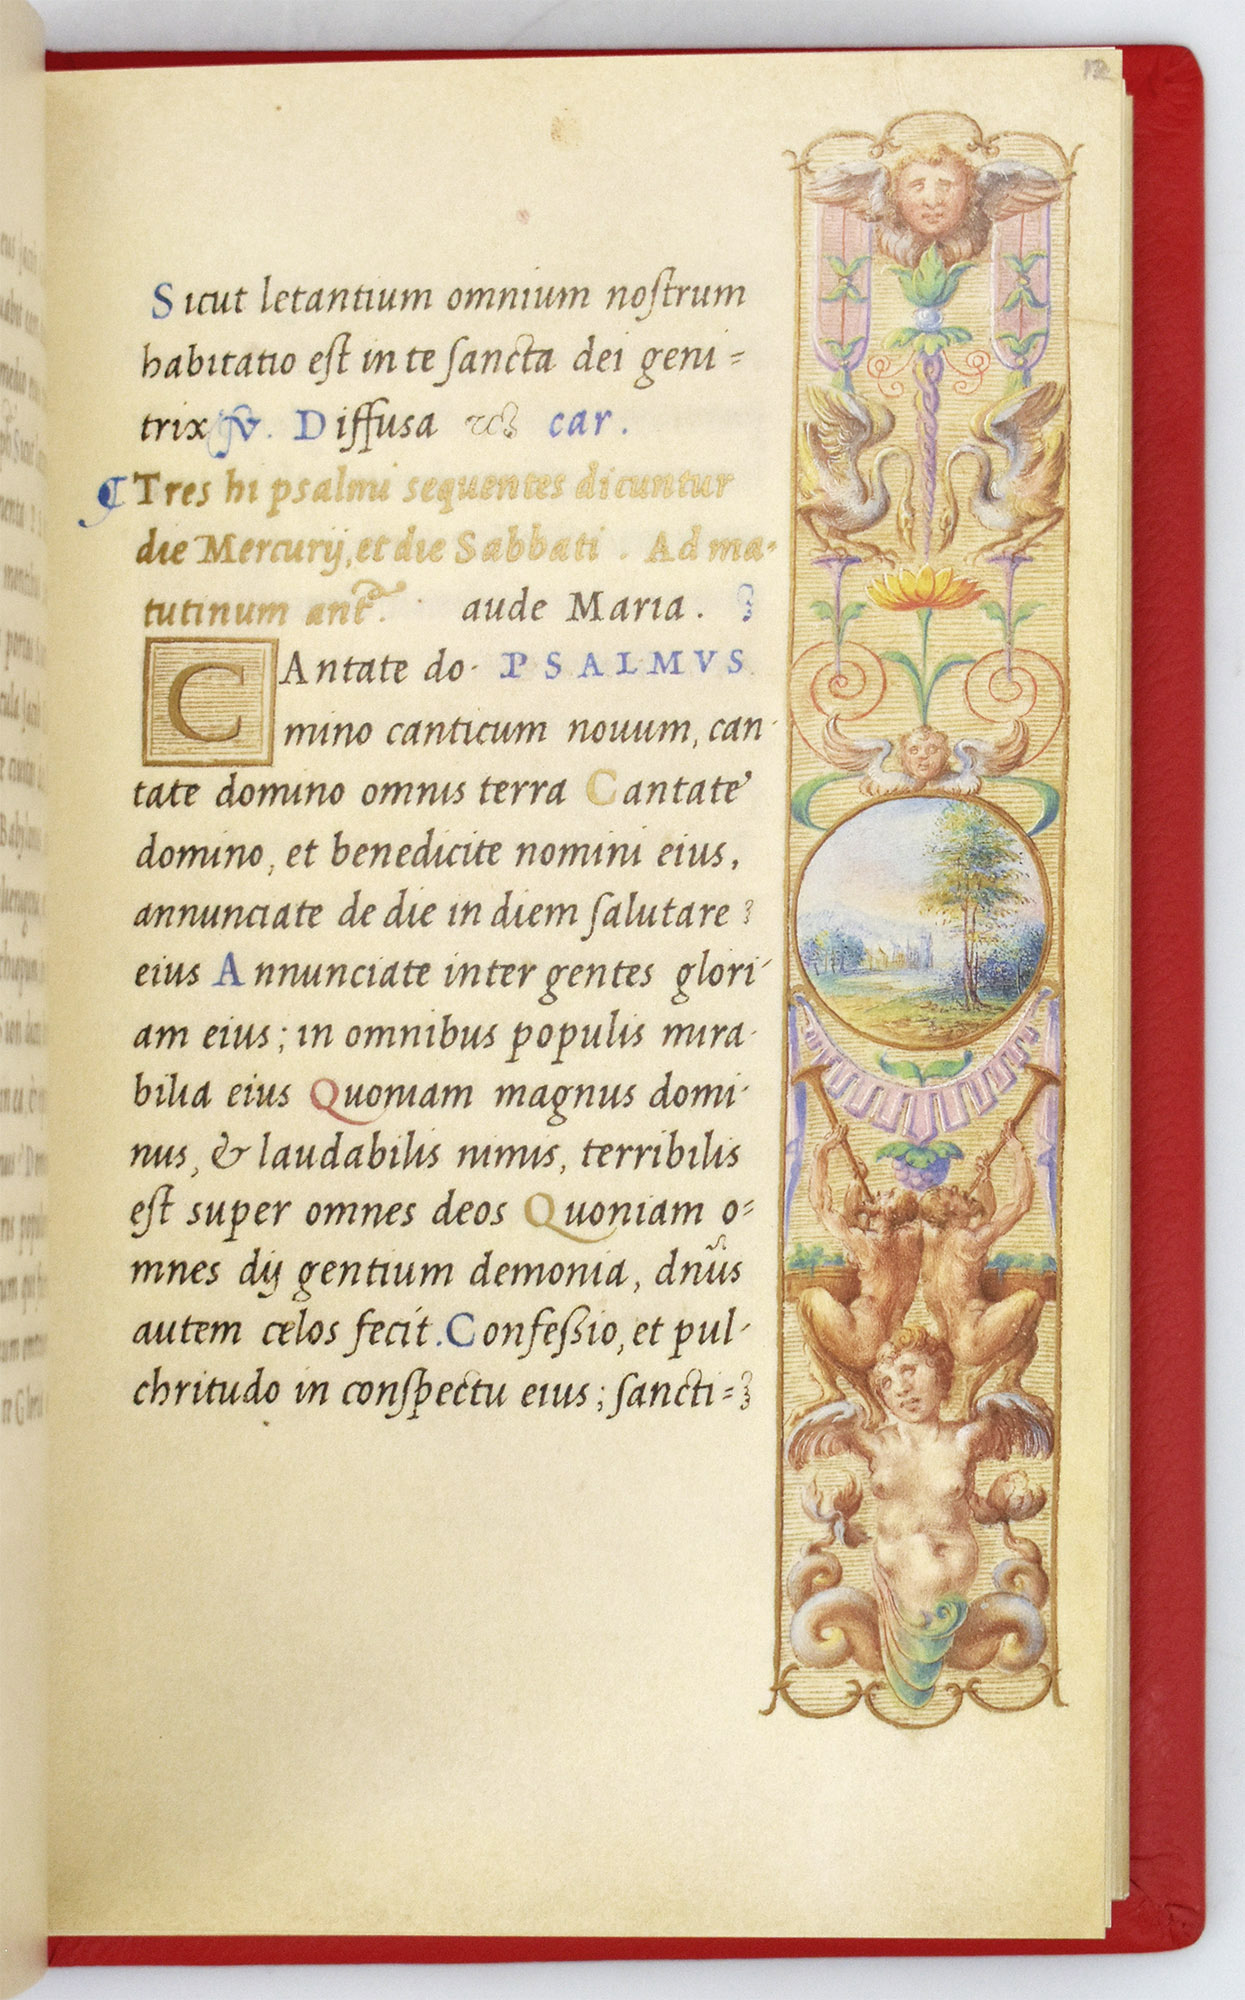 12
Sicut letantium omnium noſtrum
habitatio eſt in te ſancta dei geni=
trix ℣. Diffusa car.
¶ Tres hi psalmi sequentes dicuntur
die Mercurij, et die Sabbati. Ad ma-
tutinum ant. aude Maria.
CAntate do- PSALMVS
mino canticum nouum, can-
tate domino omnis terra Cantate
domino, et benedicite nomini eius,
annunciate de die in diem ſalutare
eius Annunciate inter gentes glori-
am eius; in omnibus populis mira-
bilia eius Quoniam magnus domi-
nus, & laudabilis nimis, terribilis
eſt super omnes deos Quoniam o=
mnes dij gentium demonia, dnūs
autem celos fecit. Confeſsio, et pul-
chritudo in conſpectu eius; ſancti=